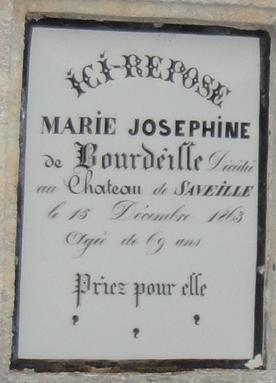 ICI-REPOSE
MARIE JOSEPHINE
de Bourdeille Décédée
au Chateau de SAVEILLE
le 15 Décembre 1863
Agée de 69 ans
Priez pour elle